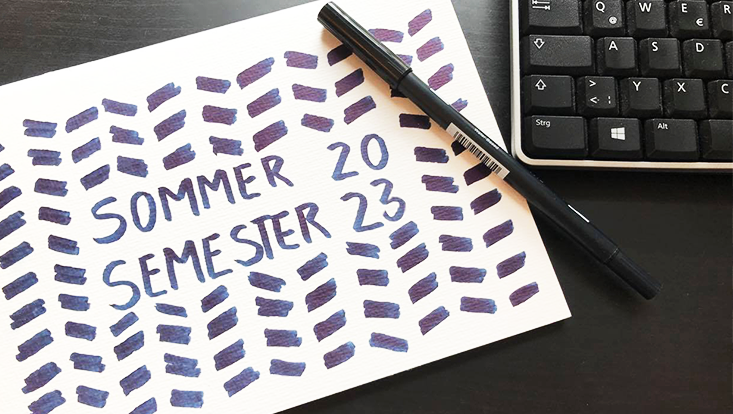 SOMMER 20
SEMESTER 23
Q @ W E € R
A S D
> < | Y X C
Strg Alt